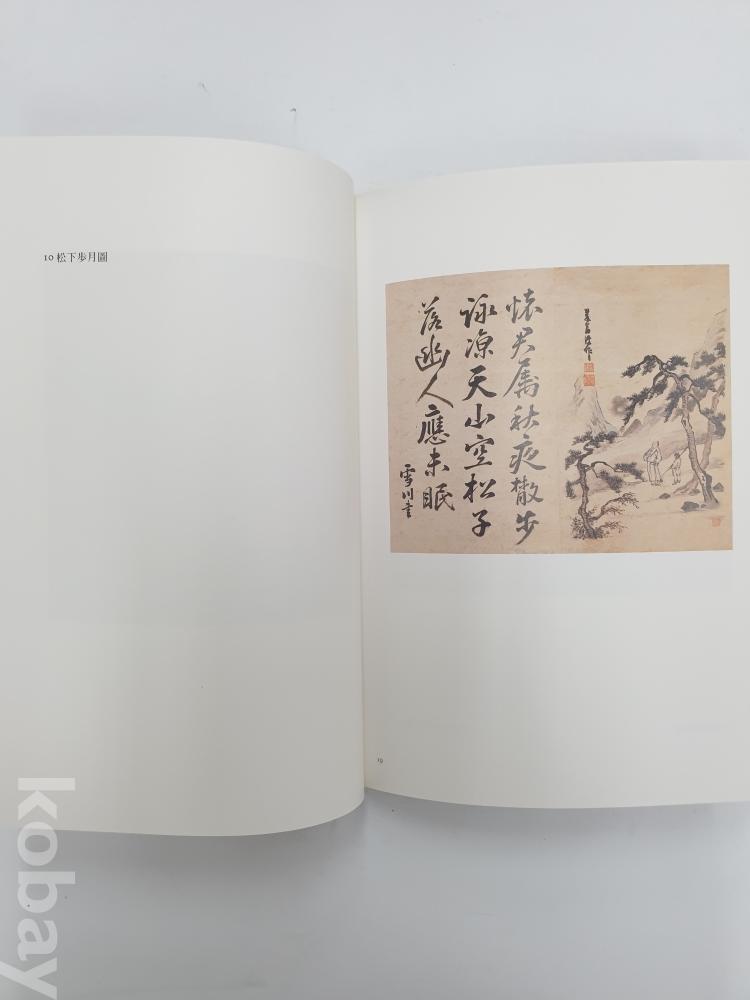 10 松下歩月圖
懷君属秋夜散步
詠凉天山空松子
落幽人應未眠
雪川書
19
kobay